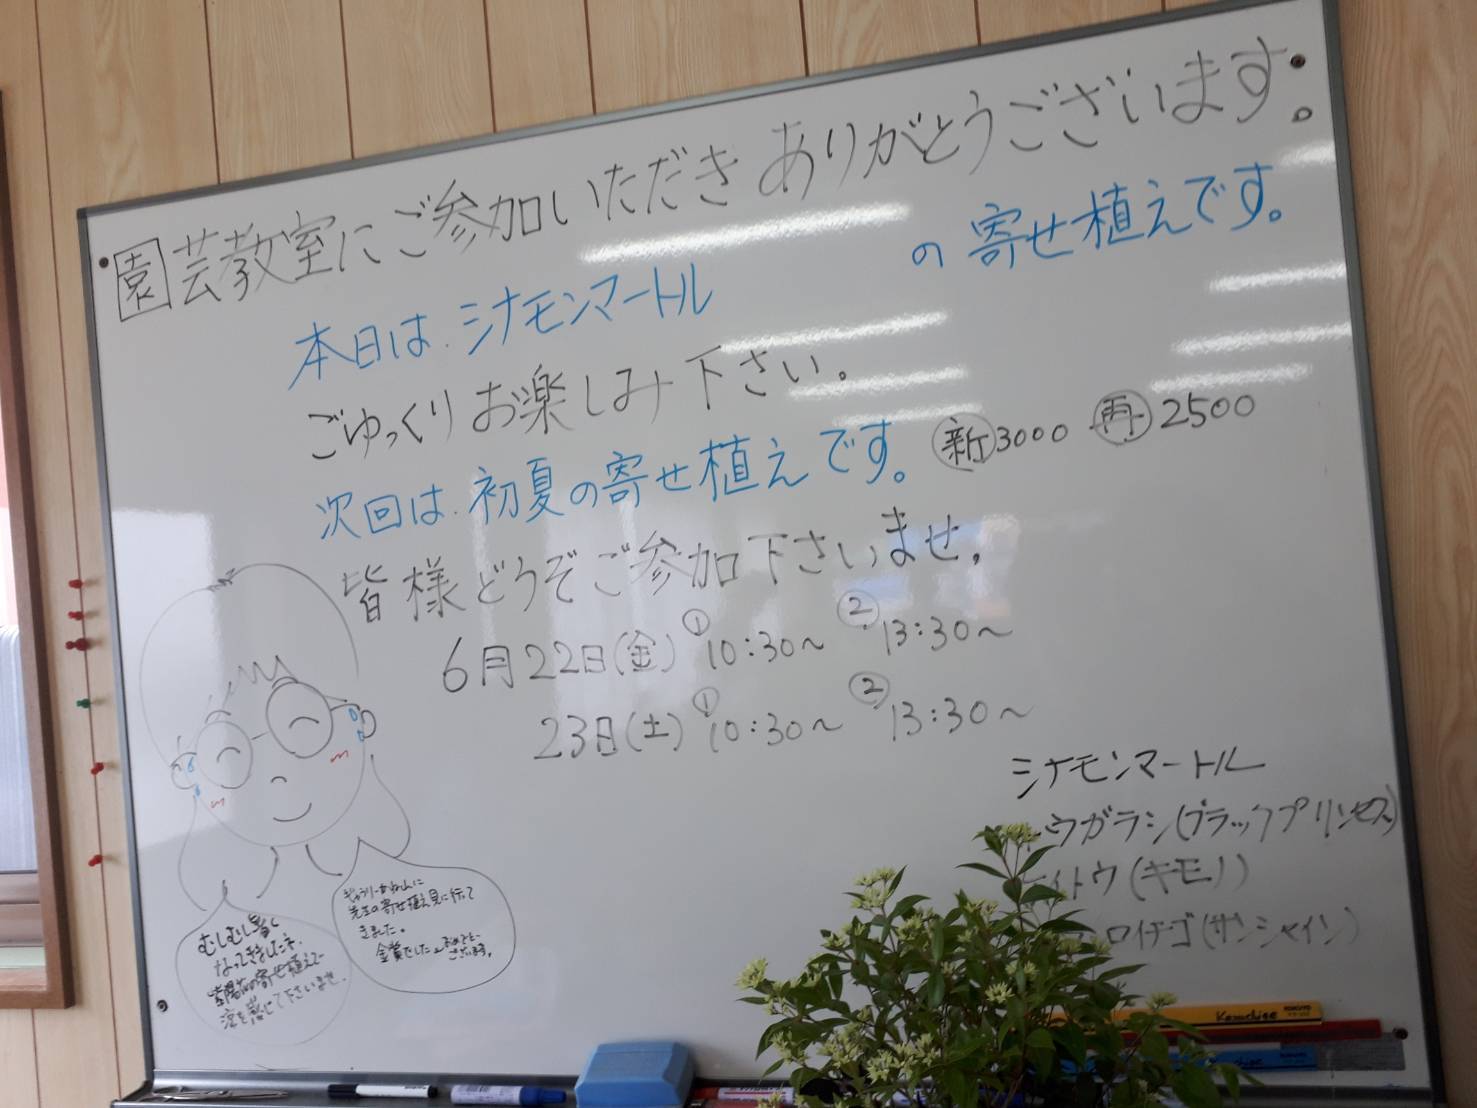 園芸教室にご参加いただきありがとうございます。
本日は、シナモンマートル の寄せ植えです。
ごゆっくりお楽しみ下さい。
次回は、初夏の寄せ植えです。 新 3000 再 2500
皆様どうぞご参加下さいませ。
6月22日(金) ① 10:30〜 ② 13:30〜
23日(土) ① 10:30〜 ② 13:30〜
シナモンマートル
ウガラシ(ブラックプリンセス)
イトウ(キモノ)
ロイチゴ(サンシャイン)
むしむし暑く
なってきました
の寄せ植えで
涼を感じて下さいませ。
先生の寄せ植え見に行って
きました。
金賞でした。おめでとう
ございます。
Kenuchige
KOKUYO